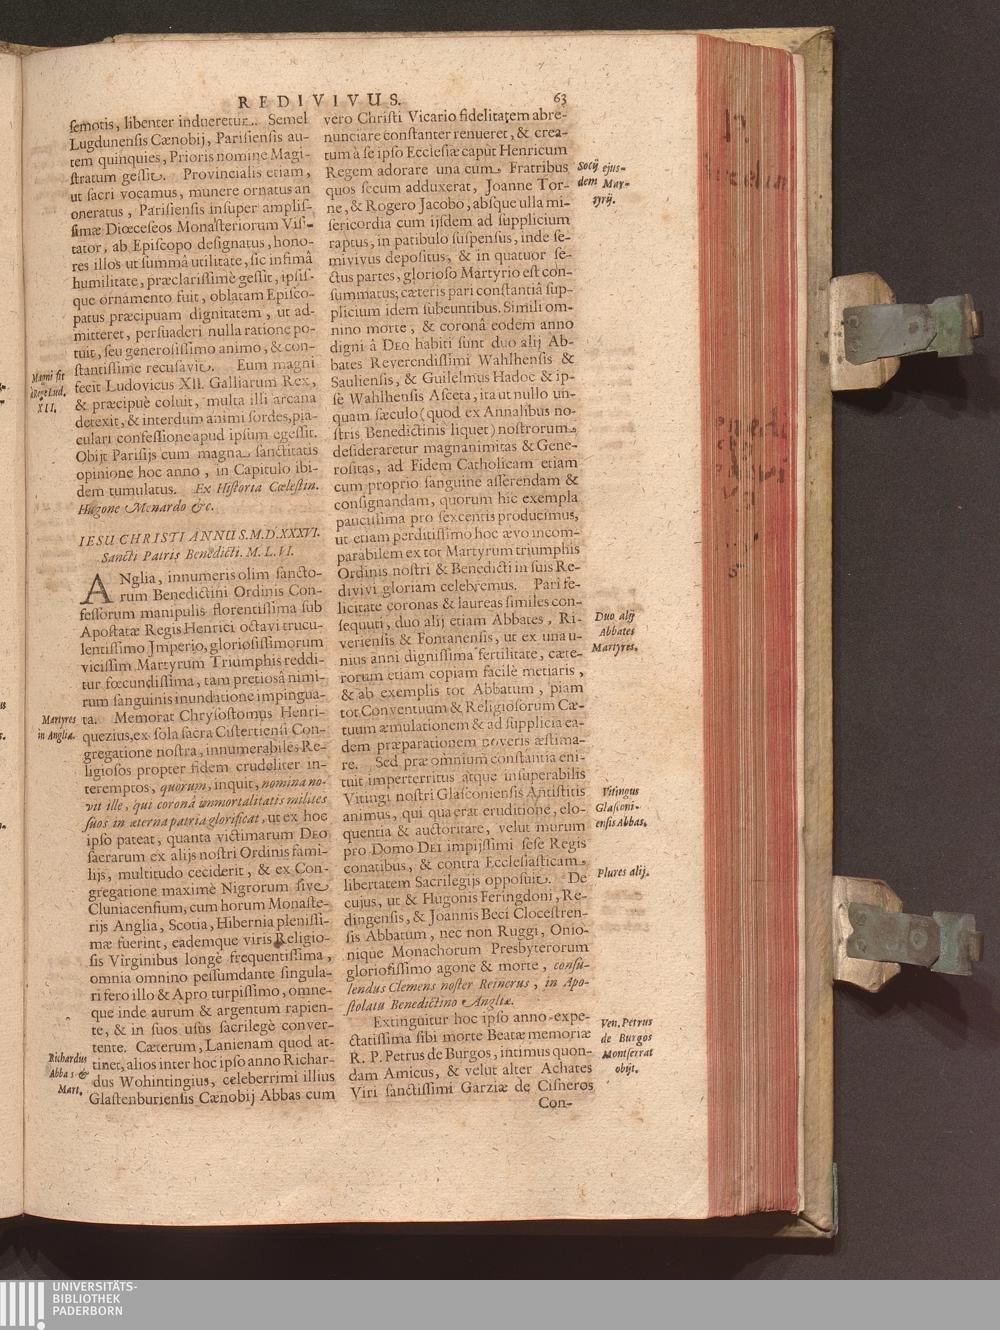 REDIVIVUS. 63
ſemotis, libenter indueretur. Semel
Lugdunenſis Cænobij, Pariſienſis au-
tem quinquies, Prioris nomine Magi-
ſtratum geſſit. Provincialis etiam,
ut ſacri vocamus, munere ornatus an
oneratus, Pariſienſis inſuper ampliſ-
ſimæ Diœceſeos Monaſteriorum Viſi-
tator, ab Epiſcopo deſignatus, hono-
res illos ut ſummâ utilitate, ſic infimâ
humilitate, præclariſſimè geſſit, ipſiſ-
que ornamento fuit, oblatam Epiſco-
patus præcipuam dignitatem, ut ad-
mitteret, perſuaderi nulla ratione po-
tuit, ſeu generoſiſſimo animo, & con-
ſtantiſſime recuſavit. Eum magni
fecit Ludovicus XII. Galliarum Rex,
& præcipuè coluit, multa illi arcana
detexit, & interdum animi ſordes, pia-
culari confeſſione apud ipſum egeſſit.
Obijt Pariſijs cum magna ſanctitatis
opinione hoc anno, in Capitulo ibi-
dem tumulatus. Ex Hiſtoria Cæleſtin.
Hugone Menardo &c.
Magni fit
à Rege Lud.
XII.
IESU CHRISTI ANNUS. M.D.XXXVI.
Sancti Patris Benedicti. M. L. VI.
ANglia, innumeris olim ſancto-
rum Benedictini Ordinis Con-
feſſorum manipulis florentiſſima ſub
Apoſtatæ Regis Henrici octavi trucu-
lentiſſimo Jmperio, glorioſiſſimorum
viciſſim Martyrum Triumphis reddi-
tur fœcundiſſima, tam pretioſâ nimi-
rum ſanguinis inundatione impingua-
ta. Memorat Chryſoſtomus Henri-
quezius, ex ſola ſacra Ciſtertienſi Con-
gregatione noſtra, innumerabiles Re-
ligioſos propter fidem crudeliter in-
teremptos, quorum, inquit, nomina no-
vit ille, qui coronâ immortalitatis milites
ſuos in æterna patria glorificat, ut ex hoc
ipſo pateat, quanta victimarum DEO
ſacrarum ex alijs noſtri Ordinis fami-
lijs, multitudo ceciderit, & ex Con-
gregatione maximè Nigrorum ſive
Cluniacenſium, cum horum Monaſte-
rijs Anglia, Scotia, Hibernia pleniſſi-
mæ fuerint, eademque viris Religio-
ſis Virginibus longè frequentiſſima,
omnia omnino peſſumdante ſingula-
ri fero illo & Apro turpiſſimo, omne-
que inde aurum & argentum rapien-
te, & in ſuos uſus ſacrilegè conver-
tente. Cæterum, Lanienam quod at-
tinet, alios inter hoc ipſo anno Richar-
dus Wohintingius, celeberrimi illius
Glaſtenburienſis Cænobij Abbas cum
Martyres
in Angliâ.
Richardus
Abbas &
Mart.
vero Chriſti Vicario fidelitatem abre-
nunciare conſtanter renueret, & crea-
tum à ſe ipſo Eccleſiæ caput Henricum
Regem adorare una cum Fratribus
quos ſecum adduxerat, Joanne Tor-
ne, & Rogero Jacobo, abſque ulla mi-
ſericordia cum ijſdem ad ſupplicium
raptus, in patibulo ſuſpenſus, inde ſe-
mivivus depoſitus, & in quatuor ſe-
ctus partes, glorioſo Martyrio eſt con-
ſummatus; cæteris pari conſtantiâ ſup-
plicium idem ſubeuntibus. Simili om-
nino morte, & coronâ eodem anno
digni à DEO habiti ſunt duo alij Ab-
bates Reverendiſſimi Wahlhenſis &
Saulienſis, & Guilelmus Hadoc & ip-
ſè Wahlhenſis Aſceta, ita ut nullo un-
quam ſæculo (quod ex Annalibus no-
ſtris Benedictinis liquet) noſtrorum
deſideraretur magnanimitas & Gene-
roſitas, ad Fidem Catholicam etiam
cum proprio ſanguine aſſerendam &
conſignandam, quorum hic exempla
pauciſſima pro ſexcentis producimus,
ut etiam perditiſſimo hoc ævo incom-
parabilem ex tot Martyrum triumphis
Ordinis noſtri & Benedicti in ſuis Re-
divivi gloriam celebremus. Pari fe-
licitate coronas & laureas ſimiles con-
ſequuti, duo alij etiam Abbates, Ri-
verienſis & Fontanenſis, ut ex una u-
nius anni digniſſima fertilitate, cæte-
rorum etiam copiam facilè metiaris,
& ab exemplis tot Abbatum, piam
tot Conventuum & Religioſorum Cæ-
tuum æmulationem & ad ſupplicia ea-
dem præparationem noveris æſtima-
re. Sed præ omnium conſtantia eni-
tuit imperterritus atque inſuperabilis
Vitingi noſtri Glaſconienſis Antiſtitis
animus, qui qua erat eruditione, elo-
quentia & auctoritate, velut murum
pro Domo DEI impijſſimi ſeſe Regis
conatibus, & contra Eccleſiaſticam
libertatem Sacrilegijs oppoſuit. De
cujus, ut & Hugonis Feringdoni, Re-
dingenſis, & Joannis Beci Cloceſtren-
ſis Abbatum, nec non Ruggi, Onio-
nique Monachorum Presbyterorum
glorioſiſſimo agone & morte, conſu-
lendus Clemens noſter Reinerus, in Apo-
ſtolatu Benedictino Angliæ.
Extinguitur hoc ipſo anno expe-
ctatiſſima ſibi morte Beatæ memoriæ
R. P. Petrus de Burgos, intimus quon-
dam Amicus, & velut alter Achates
Viri ſanctiſſimi Garziæ de Ciſneros
Con-
Socij ejus-
dem Mar-
tyrij.
Duo alij
Abbates
Martyres.
Vitingus
Glaſconi-
enſis Abbas.
Plures alij.
Ven. Petrus
de Burgos
Montſerrat
obijt.
UNIVERSITÄTS-
BIBLIOTHEK
PADERBORN